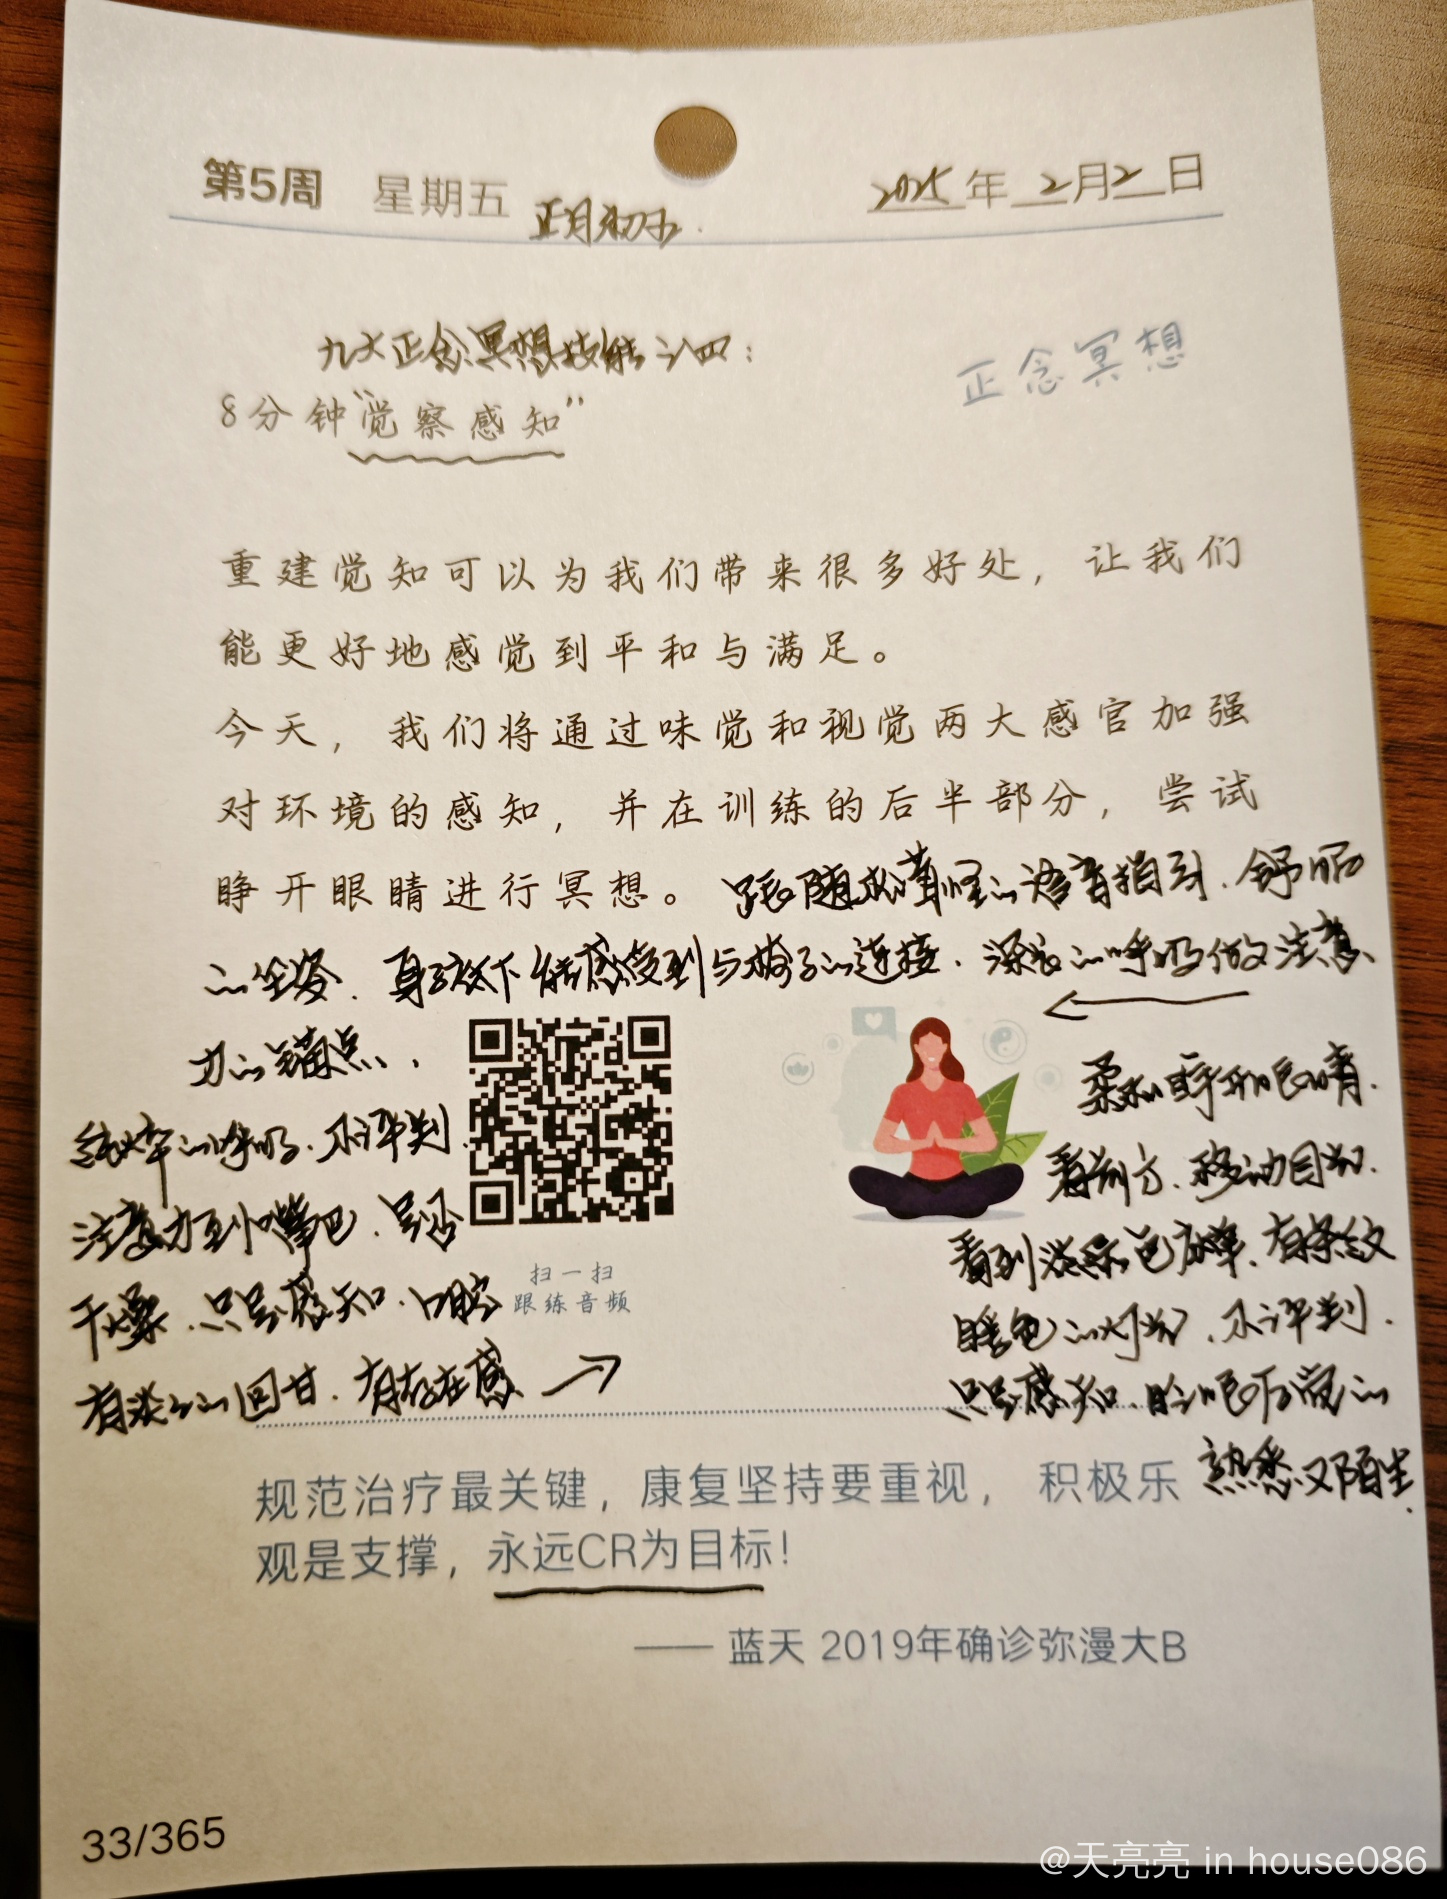 第5周 星期五 正月初五 2025年2月2日
九大正念冥想技能之四:
正念冥想
8分钟“觉察感知”
重建觉知可以为我们带来很多好处，让我们
能更好地感觉到平和与满足。
今天，我们将通过味觉和视觉两大感官加强
对环境的感知，并在训练的后半部分，尝试
睁开眼睛进行冥想。跟随 的语音指引.舒服
的坐姿.身子放下能感受到与椅子的连接.深长的呼吸做注意
力的锚点.
纯粹的呼吸.不评判.
注意力到嘴巴.是否
干燥.只是感知.口腔
有淡淡的回甘.有存在感
扫一扫
跟练音频
柔和睁开眼睛.
看前方.移动目光.
看到 色 .有条纹
暖色的灯光.不评判.
只是感知. 的
熟悉又陌生.
规范治疗最关键，康复坚持要重视，积极乐
观是支撑，永远CR为目标！
—— 蓝天 2019年确诊弥漫大B
33/365
@天亮亮 in house086